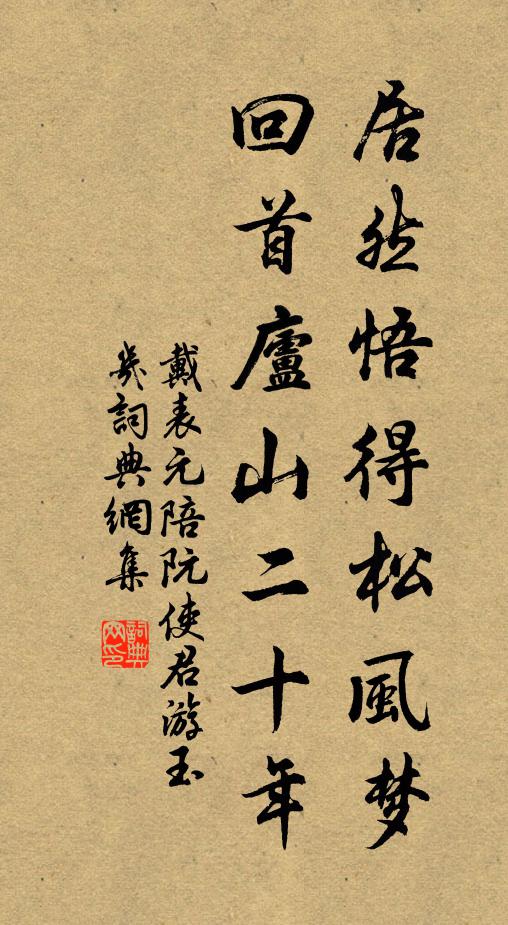 居然悟得松風梦
回首廬山二十年
戴表元陪阮使君游玉
几詞典網集
詞典
网印